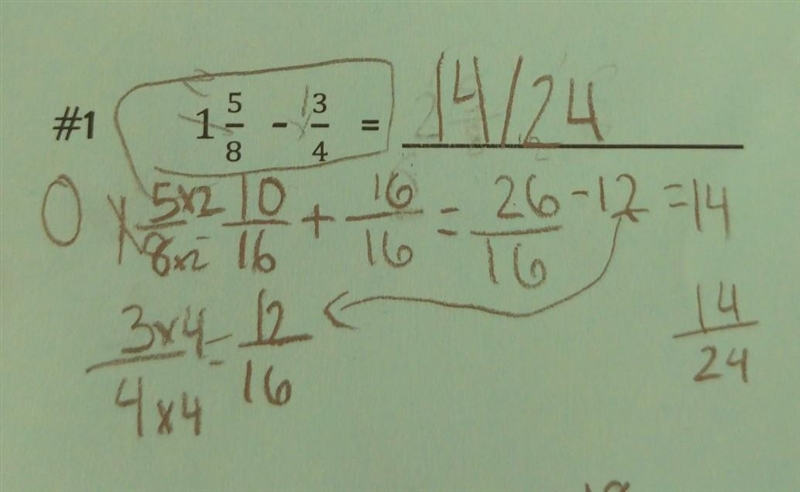 #1 1 5/8 - 3/4 = 14/24
0 1 5×2/8×2 = 10/16 + 16/16 = 26/16 - 12 = 14
3×4/4×4 = 12/16
14/24